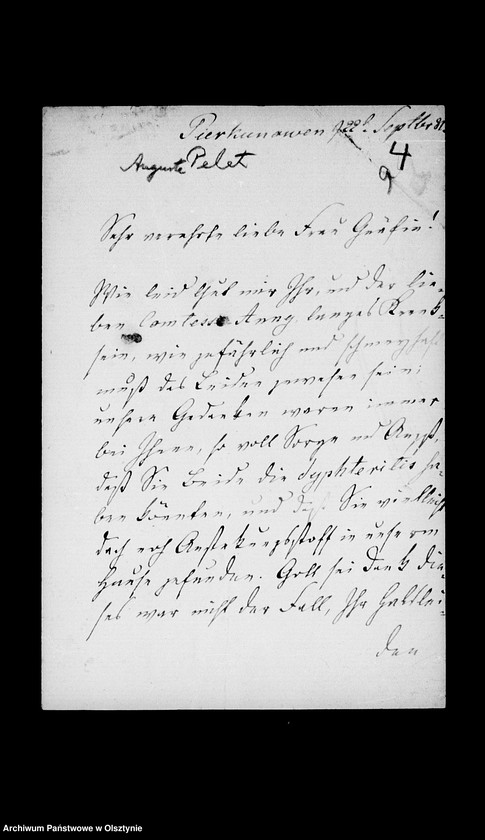 Pierkunowen 22t. Septbr 81.
Auguste Pelet
4
Sehr verehrte liebe Frau Gräfin!
Wie leid thut mir Ihr, und der lie-
ben Comtess Anny, langes Krank-
sein, wie gefährlich und schmerzhaft
muß das Leiden gewesen sein;
unsere Gedanken waren immer
bei Ihnen, so voll Sorge und Angst,
daß Sie Beide die Dyphteritis ha-
ben könnten, und daß Sie vielleicht
doch noch Ansteckungsstoff in unserem
Hause gefunden. Gott sei Dank die-
ses war nicht der Fall, Ihr Halslei-
den
Archiwum Państwowe w Olsztynie